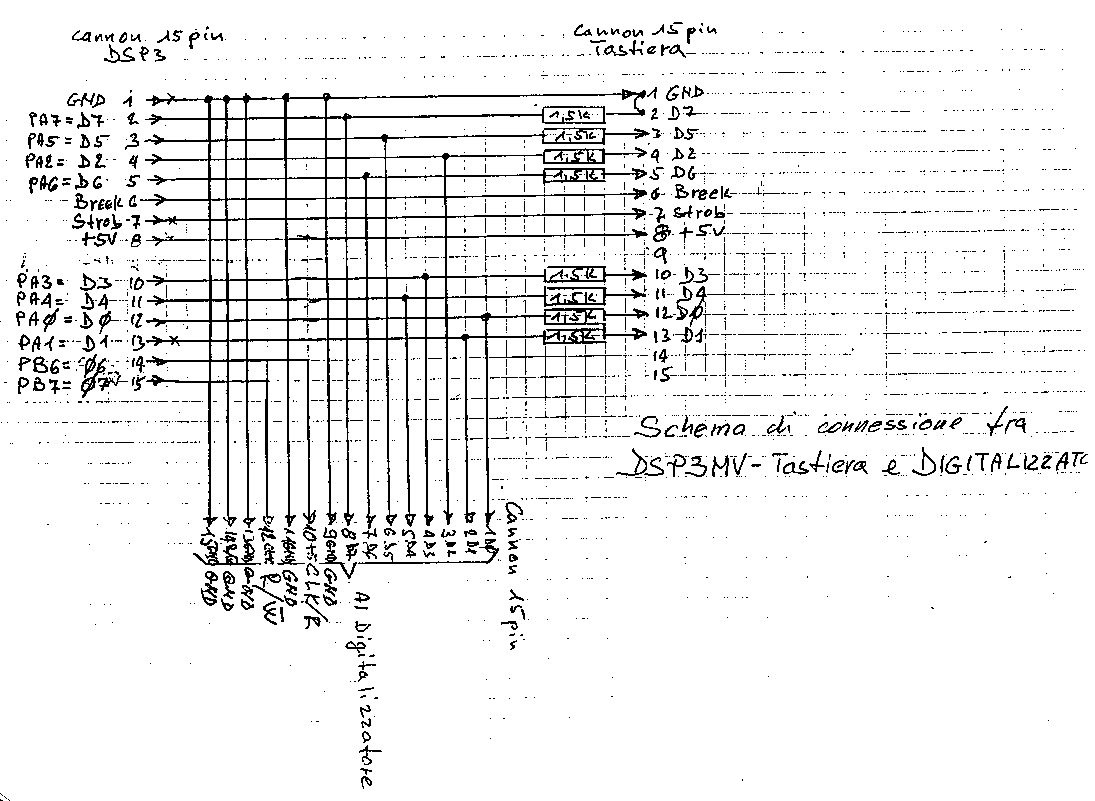 Cannon 15 pin
DSP3
Cannon 15 pin
Tastiera
GND 1
PA7 = D7 2
PA5 = D5 3
PA2 = D2 4
PA6 = D6 5
Breek 6
Strob 7
+5V 8
PA3 = D3 10
PA4 = D4 11
PAØ = DØ 12
PA1 = D1 13
PB6 = Ø6 14
PB7 = Ø7 15
1,5K
1,5K
1,5K
1,5K
1,5K
1,5K
1,5K
1,5K
1 GND
2 D7
3 D5
4 D2
5 D6
6 Breek
7 Strob
8 +5V
9
10 D3
11 D4
12 DØ
13 D1
14
15
Schema di connessione fra
DSP3MV - Tastiera e DIGITALIZZATO
GND
GND
GND
R/W
GND
CLK/R
9 GND GND
8 D7
7 D6
6 D5
5 D4
4 D3
3 D2
2 D1
Cannon 15 pin
Al Digitalizzatore